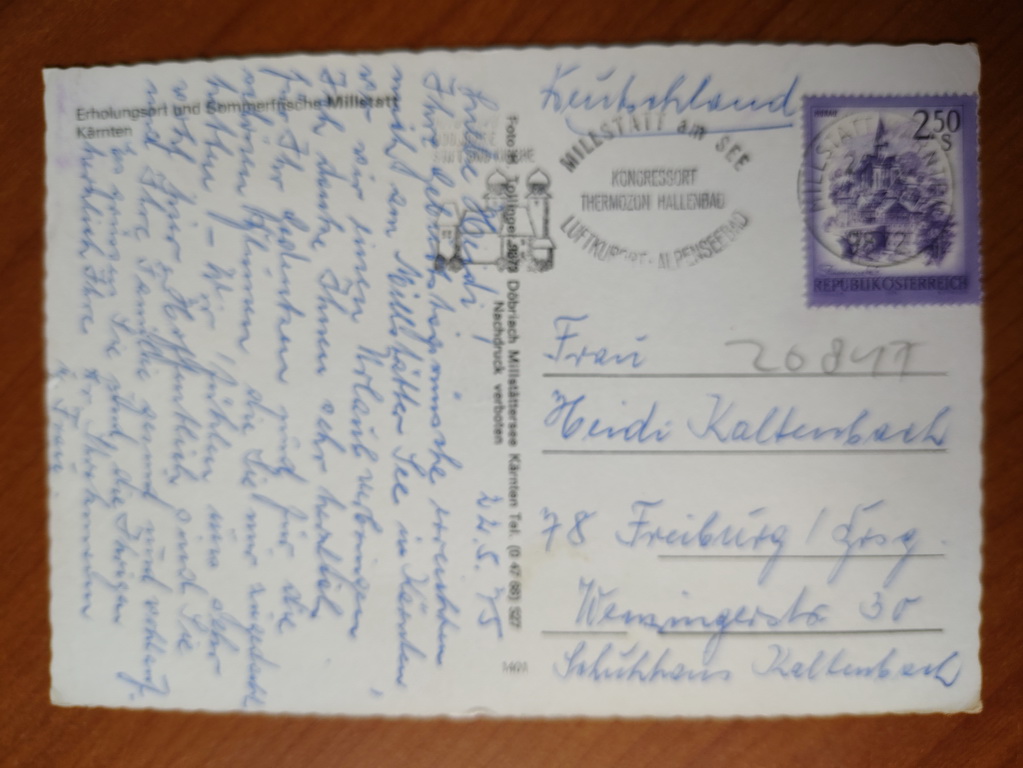 Erholungsort und Sommerfrische Millstatt
Kärnten
22.5.75
Liebe Heidi,
Ihre Geburtstagswünsche erreichten
mich am Millstätter See in Kärnten,
wo wir einen Urlaub verbringen.
Ich danke Ihnen sehr herzlich
für Ihr Gedenken und für die
schönen Blumen, die Sie mir zugedacht
hatten – Wir fühlen uns sehr
wohl hier. Hoffentlich sind Sie
und Ihre Familie gesund und wohlauf.
Es grüßen Sie und die Ihrigen
herzlich Ihre
u. Frau.
Foto H. Tollinger 9873 Döbriach Millstättersee Kärnten Tel. (0 47 68) 527
Nachdruck verboten
Deutschland
MILLSTATT am SEE
KONGRESSORT
THERMOZON HALLENBAD
LUFTKURORT - ALPENSEEBAD
2.50
S
REPUBLIK ÖSTERREICH
Frau
20841
Heidi Kaltenbach
78 Freiburg / Brsg.
Wenzingerstr. 30
Schuhhaus Kaltenbach